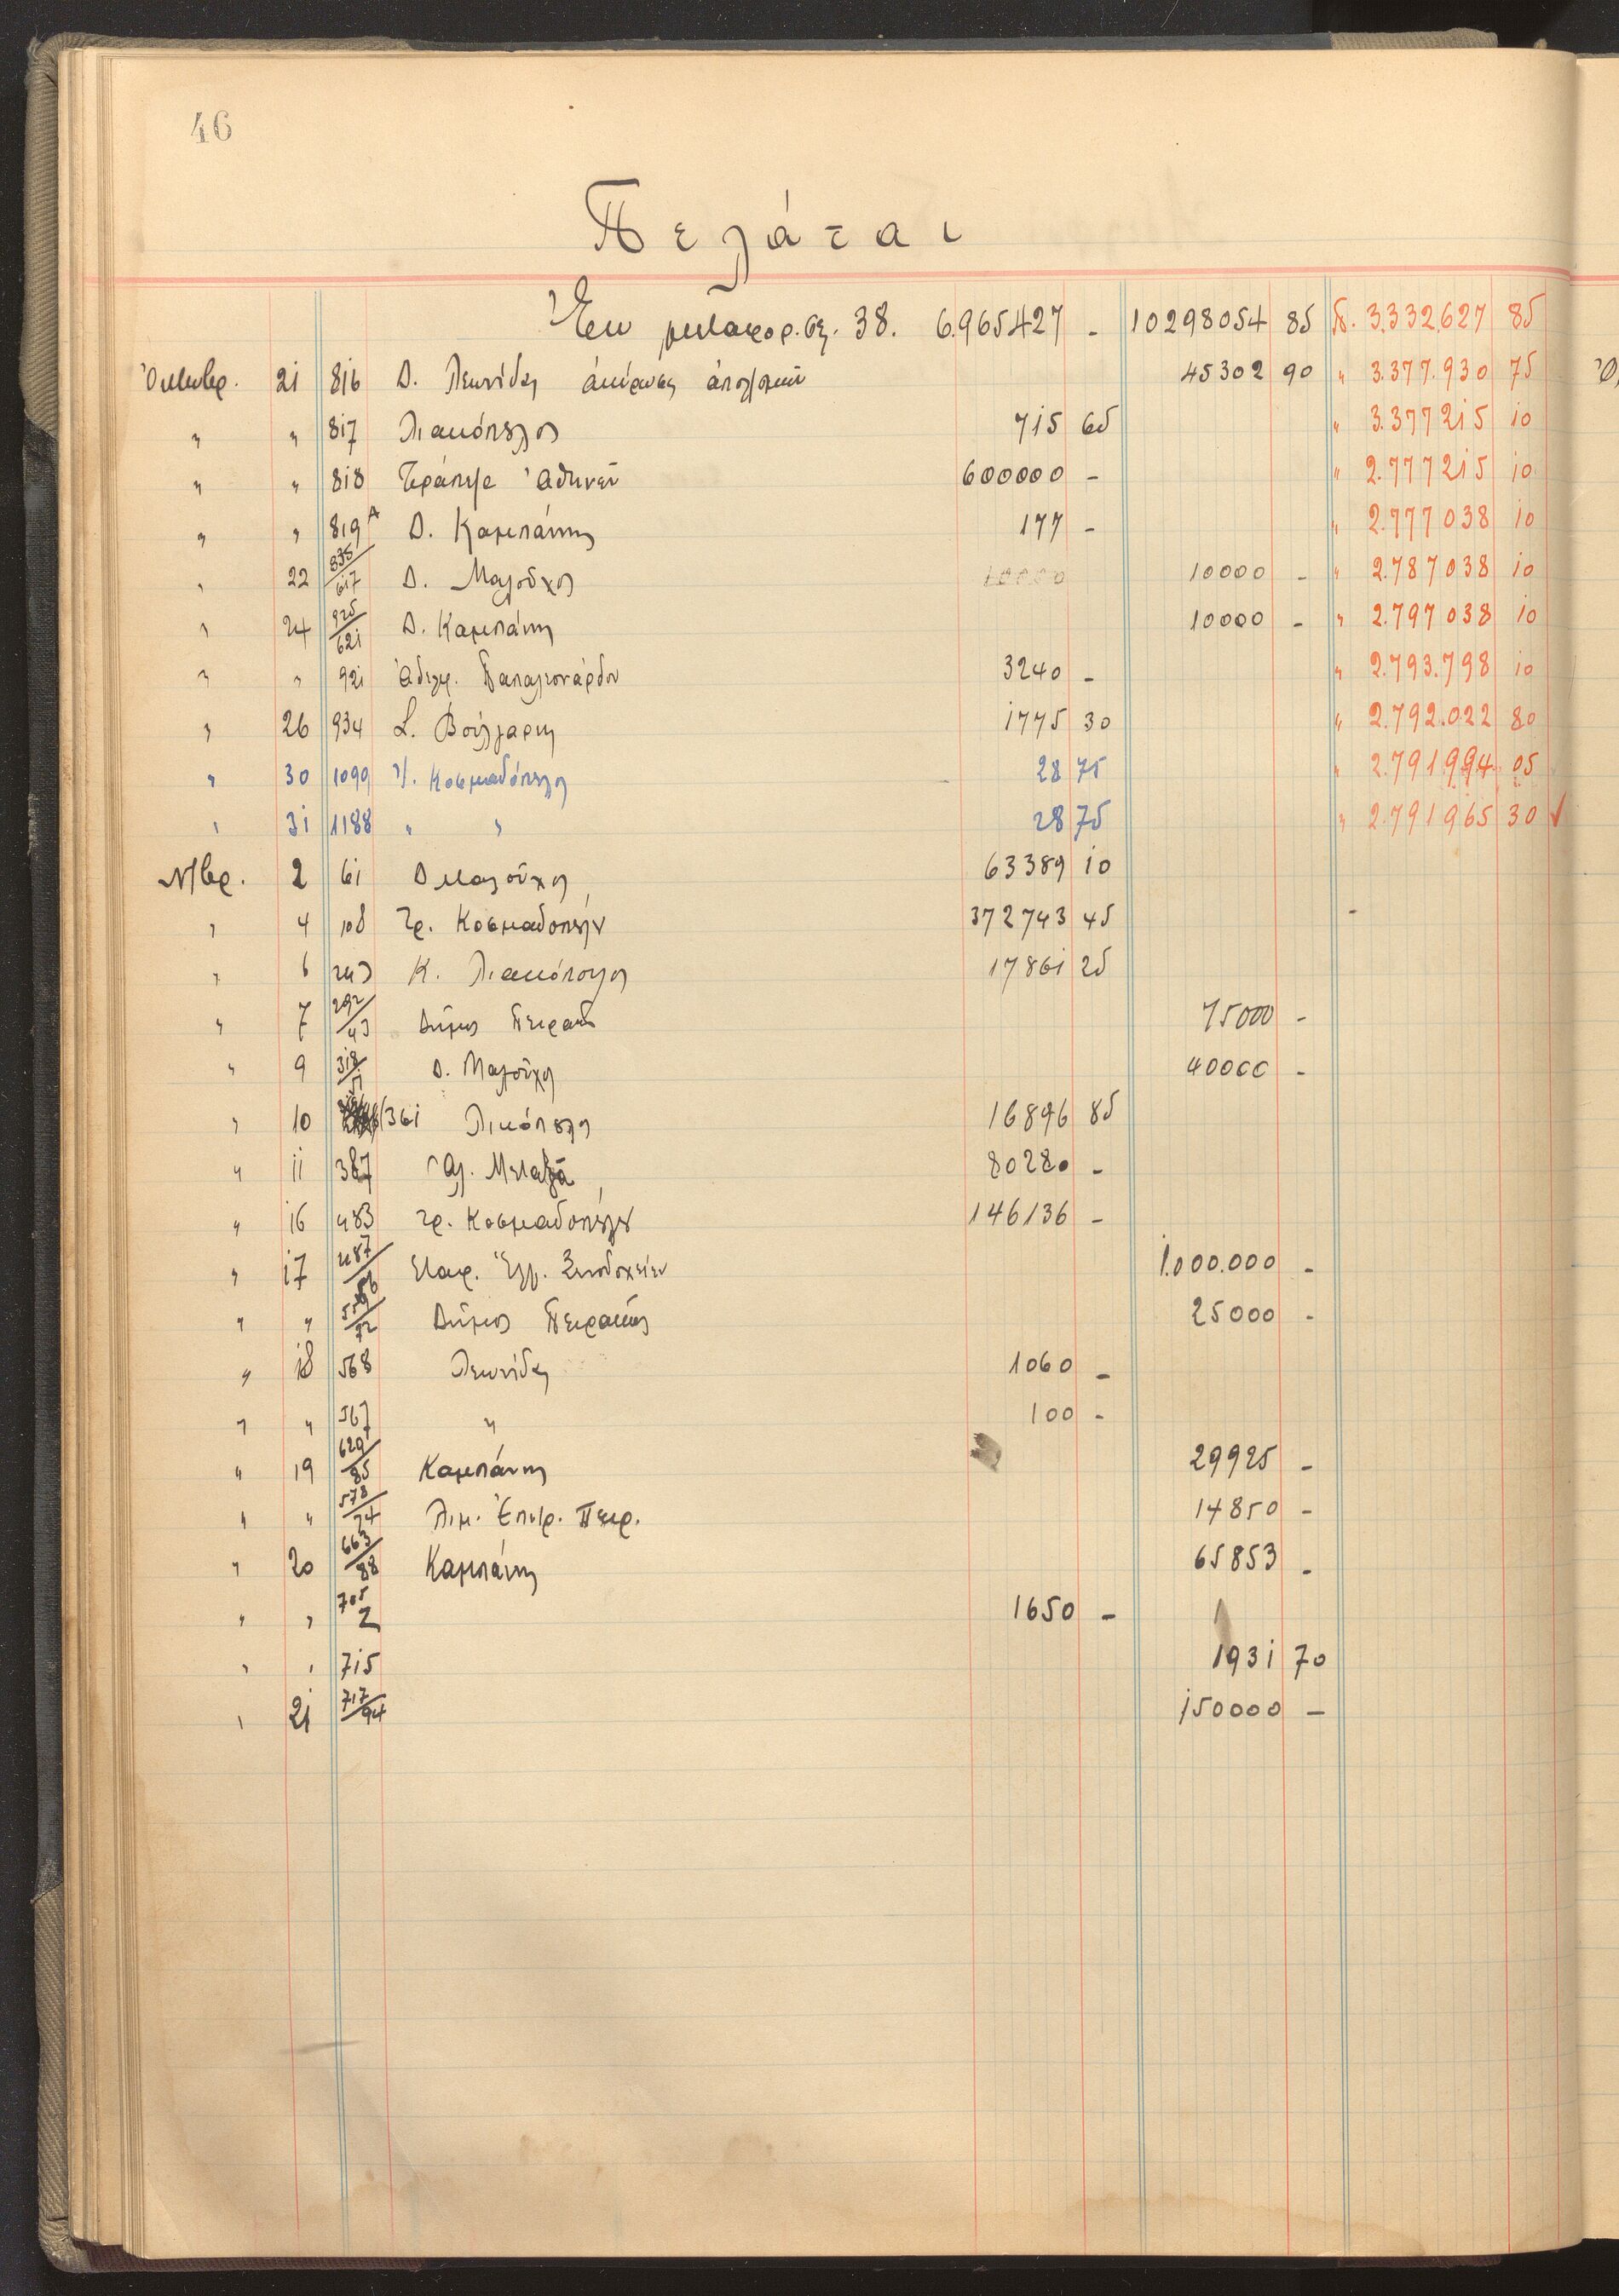 46
Πελάται
Ἐκ μεταφορ. σελ. 38. 6.965427 - 10298054 85 Π. 3.332.627 85
Ὀκτωβρ. 21 816 Δ. Λεωνίδας ἀκύρωσις 45302 90 " 3.377.930 75
" " 817 Λιακόπουλος 715 65 " 3.377215 10
" " 818 Τράπεζα Ἀθηνῶν 600000 - " 2.777215 10
" " 819Α Δ. Καμπάνης 177 - " 2.777038 10
" 22 835/617 Δ. Μαλοῦχος 10000 10000 - " 2.787038 10
" 24 925/621 Δ. Καμπάνης 10000 - " 2.797038 10
" " 921 Ἀδελφ. Παπαλεονάρδου 3240 - " 2.793.798 10
" 26 934 Σ. Βούλγαρης 1775 30 " 2.792.022 80
" 30 1099 Ἰ. Κοσμαδόπουλος 28 75 " 2.791994 05
" 31 1188 " " 28 75 " 2.791965 30 ✓
Ν/βρ. 2 61 Δ Μαλοῦχος 63389 10
" 4 108 Τρ. Κοσμαδοπούλου 372743 45
" 6 243 Κ. Λιακόπουλος 17861 25
" 7 292/43 Δῆμος Πειραιῶς 75000 -
" 9 318/51 Δ. Μαλοῦχος 40000 -
" 10 /361 Λικόπουλος 16896 85
" 11 387 Ἀλ. Μεταξᾶ 80280 -
" 16 483 Τρ. Κοσμαδοπούλου 146136 -
" 17 487/56 Ἑταιρ. Ἑλλ. Ξενοδοχείων 1.000.000 -
" " 559/72 Δῆμος Πειραιῶς 25000 -
" 18 568 Λεωνίδας 1060 -
" " 567 " 100 -
" 19 629/85 Καμπάνης 29925 -
" " 578/74 Λιμ. Ἐπιτρ. Πειρ. 14850 -
" 20 663/88 Καμπάνης 65853 -
" " 705 Σ 1650 -
" " 715 1931 70
" 21 717/94 150000 -